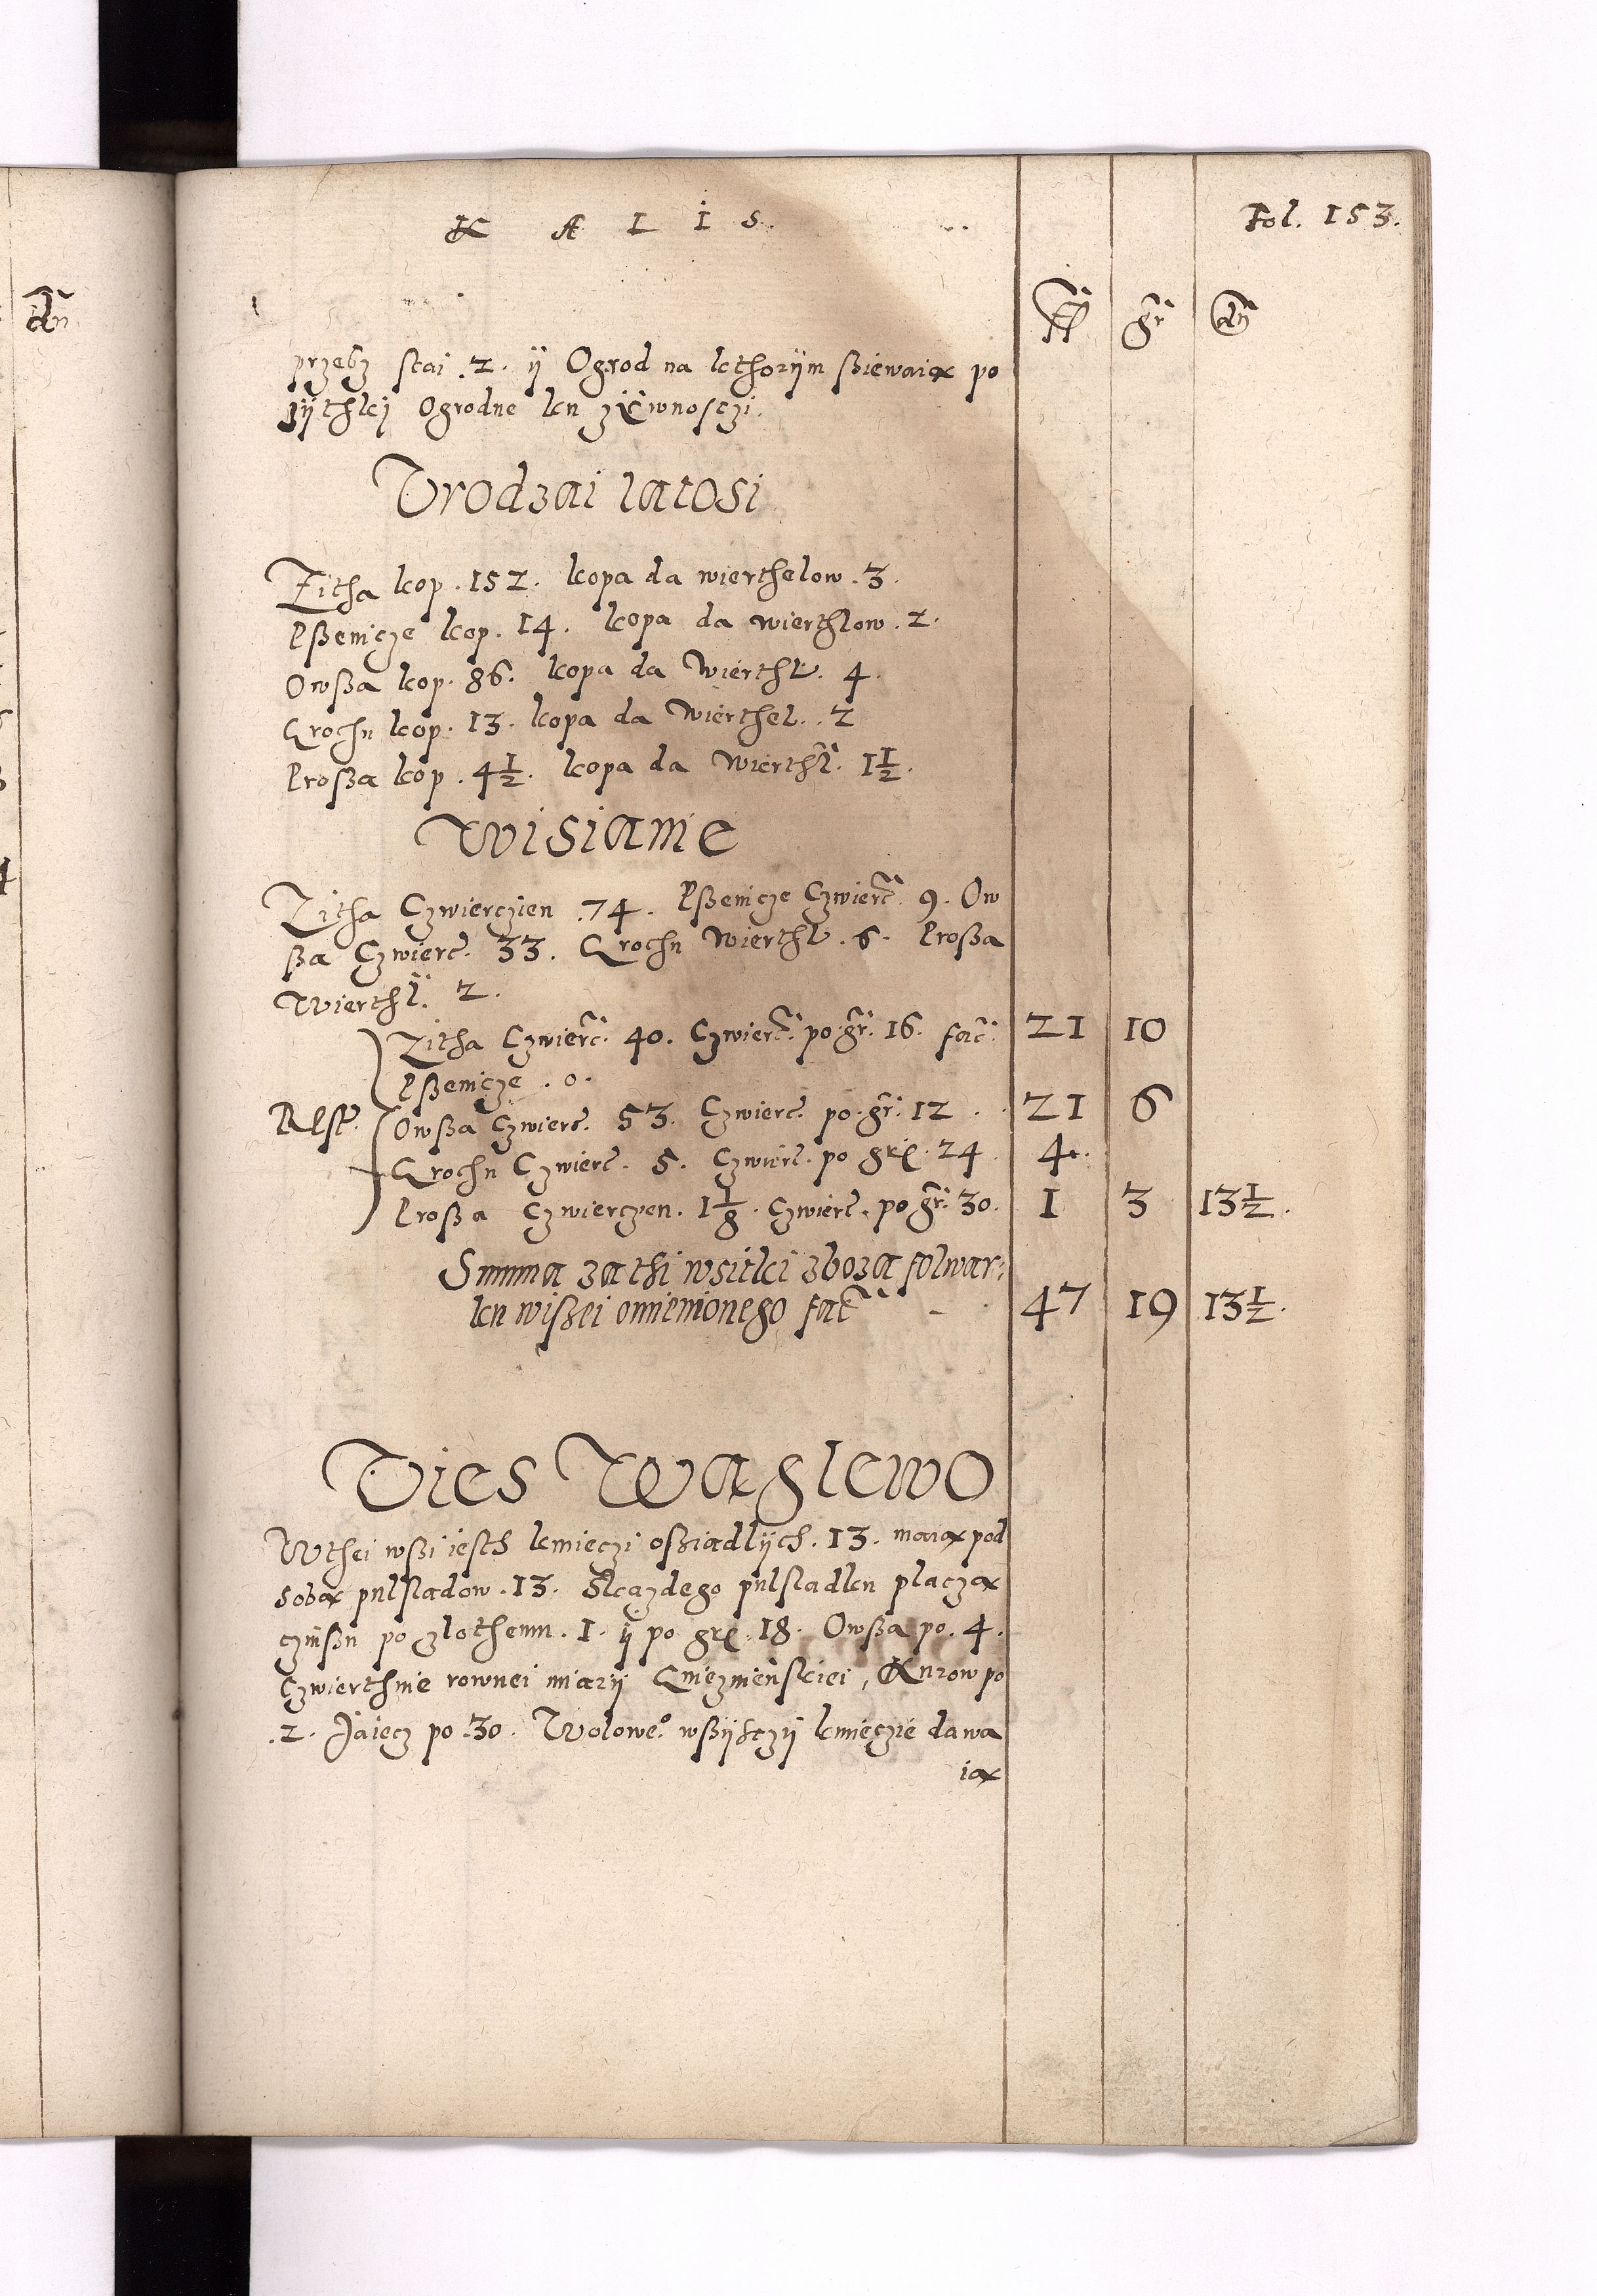 K A L I S
Fol. 153.
fl gr dn
przecz stai .2. ÿ Ogrod na kthorÿm sziewaią po
zÿthki Ogrodne ku ziwnosczi.
Vrodzai latosi
Zitha kop .152. kopa da wierthelow .3.
Pszenicze kop. 14. kopa da wierthlow .2.
Owsza kop. 86. kopa da Wierthl. 4.
Grochu kop. 13. kopa da Wierthel. .2
Prosza kop .4½. kopa da Wierthl. 1½.
Wisianie
Zitha Czwierczien .74. Pszenicze Czwierc. 9. Ow
sza Czwierc. 33. Grochu Wierthl .6. Prosza
Wierthl. 2.
Zitha Czwierc. 40. Czwierc. po gr. 16. fac. 21 10
Pszenicze .0.
Rest. Owsza Czwierc. 53. Czwierc. po. gr. 12 . . 21 6
Grochu Czwierc. 5. Czwierc. po gr. 24. 4.
Prosza Czwierczen. 1⅛. Czwierc. po gr. 30. 1 3 13½.
Summa za thi wsitki zboza folwar:
ku wiszei omienionego fac - 47 19 13½.
Vies Waglewo
Wthei wszi iesth kmieczi osziadlÿch .13. maią pod
sobą pulsladow .13. Skazdego pulsladku placzą
czinszu po zlothemu .1. ÿ po gr. 18. Owsza po .4.
Czwierthnie rownei miarÿ Gniezninskiei, Kurow po
.2. Jaiecz po .30. Wolowe° wszÿsczÿ kmieczie dawa
ią
dn